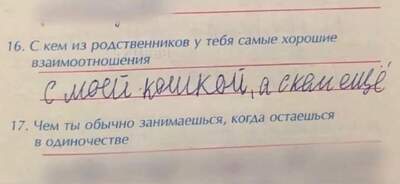 16. С кем из родственников у тебя самые хорошие
взаимоотношения
с моей кошкой, а с кем ещё
17. Чем ты обычно занимаешься, когда остаешься
в одиночестве